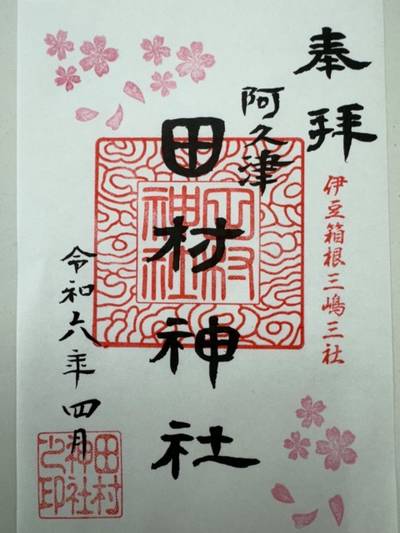 奉拝
伊豆箱根三嶋三社
阿久津
田村神社
田村神社
令和六年四月
田村神社之印